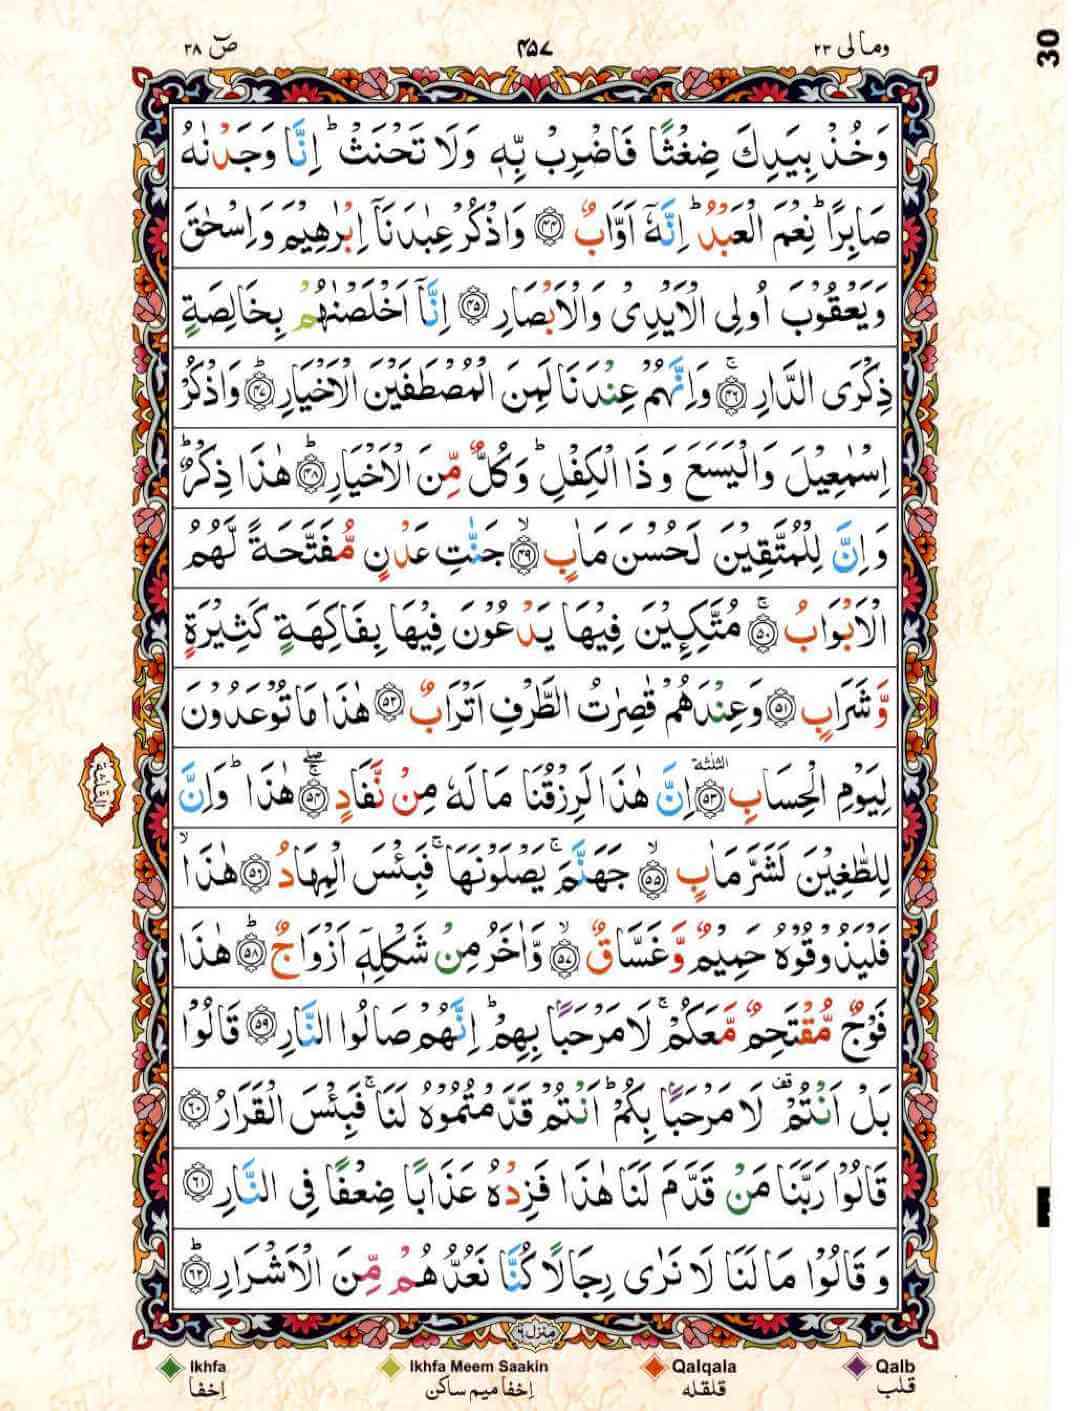 وما لی ۲۳
۴۵۷
صٓ ۳۸
30
وَخُذْ بِيَدِكَ ضِغْثًا فَاضْرِبْ بِّهٖ وَلَا تَحْنَثْ ؕ اِنَّا وَجَدْنٰهُ
صَابِرًا ؕ نِعْمَ الْعَبْدُ ؕ اِنَّهٗۤ اَوَّابٌ ﴿۴۴﴾ وَاذْكُرْ عِبٰدَنَاۤ اِبْرٰهِيْمَ وَاِسْحٰقَ
وَيَعْقُوْبَ اُولِى الْاَيْدِىْ وَالْاَبْصَارِ ﴿۴۵﴾ اِنَّاۤ اَخْلَصْنٰهُمْ بِخَالِصَةٍ
ذِكْرَى الدَّارِ ۚ﴿۴۶﴾ وَاِنَّهُمْ عِنْدَنَا لَمِنَ الْمُصْطَفَيْنَ الْاَخْيَارِ ؕ﴿۴۷﴾ وَاذْكُرْ
اِسْمٰعِيْلَ وَالْيَسَعَ وَذَا الْكِفْلِ ؕ وَكُلٌّ مِّنَ الْاَخْيَارِ ؕ﴿۴۸﴾ هٰذَا ذِكْرٌ ؕ
وَاِنَّ لِلْمُتَّقِيْنَ لَحُسْنَ مَاٰبٍ ۙ﴿۴۹﴾ جَنّٰتِ عَدْنٍ مُّفَتَّحَةً لَّهُمُ
الْاَبْوَابُ ۚ﴿۵۰﴾ مُتَّكِـِٕيْنَ فِيْهَا يَدْعُوْنَ فِيْهَا بِفَاكِهَةٍ كَثِيْرَةٍ
وَّشَرَابٍ ﴿۵۱﴾ وَعِنْدَهُمْ قٰصِرٰتُ الطَّرْفِ اَتْرَابٌ ﴿۵۲﴾ هٰذَا مَا تُوْعَدُوْنَ
لِيَوْمِ الْحِسَابِ ﴿۵۳﴾ اِنَّ هٰذَا لَرِزْقُنَا مَا لَهٗ مِنْ نَّفَادٍ ۚۖ﴿۵۴﴾ هٰذَا ؕ وَاِنَّ
لِلطّٰغِيْنَ لَشَرَّ مَاٰبٍ ۙ﴿۵۵﴾ جَهَنَّمَ ۚ يَصْلَوْنَهَا ۚ فَبِئْسَ الْمِهَادُ ﴿۵۶﴾ هٰذَا ۙ
فَلْيَذُوْقُوْهُ حَمِيْمٌ وَّغَسَّاقٌ ۙ﴿۵۷﴾ وَّاٰخَرُ مِنْ شَكْلِهٖۤ اَزْوَاجٌ ؕ﴿۵۸﴾ هٰذَا
فَوْجٌ مُّقْتَحِمٌ مَّعَكُمْ ۚ لَا مَرْحَبًۢا بِهِمْ ؕ اِنَّهُمْ صَالُوا النَّارِ ﴿۵۹﴾ قَالُوْا
بَلْ اَنْتُمْ قف لَا مَرْحَبًۢا بِكُمْ ؕ اَنْتُمْ قَدَّمْتُمُوْهُ لَنَا ۚ فَبِئْسَ الْقَرَارُ ﴿۶۰﴾
قَالُوْا رَبَّنَا مَنْ قَدَّمَ لَنَا هٰذَا فَزِدْهُ عَذَابًا ضِعْفًا فِى النَّارِ ﴿۶۱﴾
وَقَالُوْا مَا لَنَا لَا نَرٰى رِجَالًا كُنَّا نَعُدُّهُمْ مِّنَ الْاَشْرَارِ ؕ﴿۶۲﴾
منزل ۶
Ikhfa Ikhfa Meem Saakin Qalqala Qalb
اِخفا اِخفا میم ساکن قلقله قلب